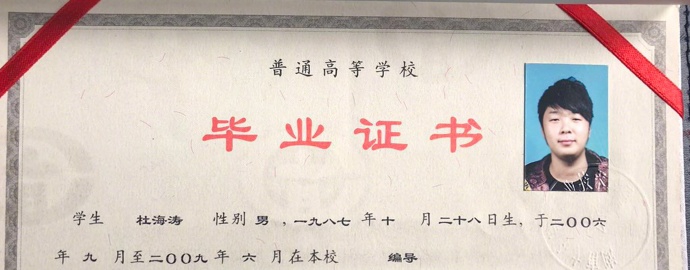 普通高等学校
毕业证书
学生 杜海涛 性别 男 ，一九八七 年 十 月 二十八 日生，于 二〇〇六
年 九 月至 二〇〇九 年 六 月在本校 编导